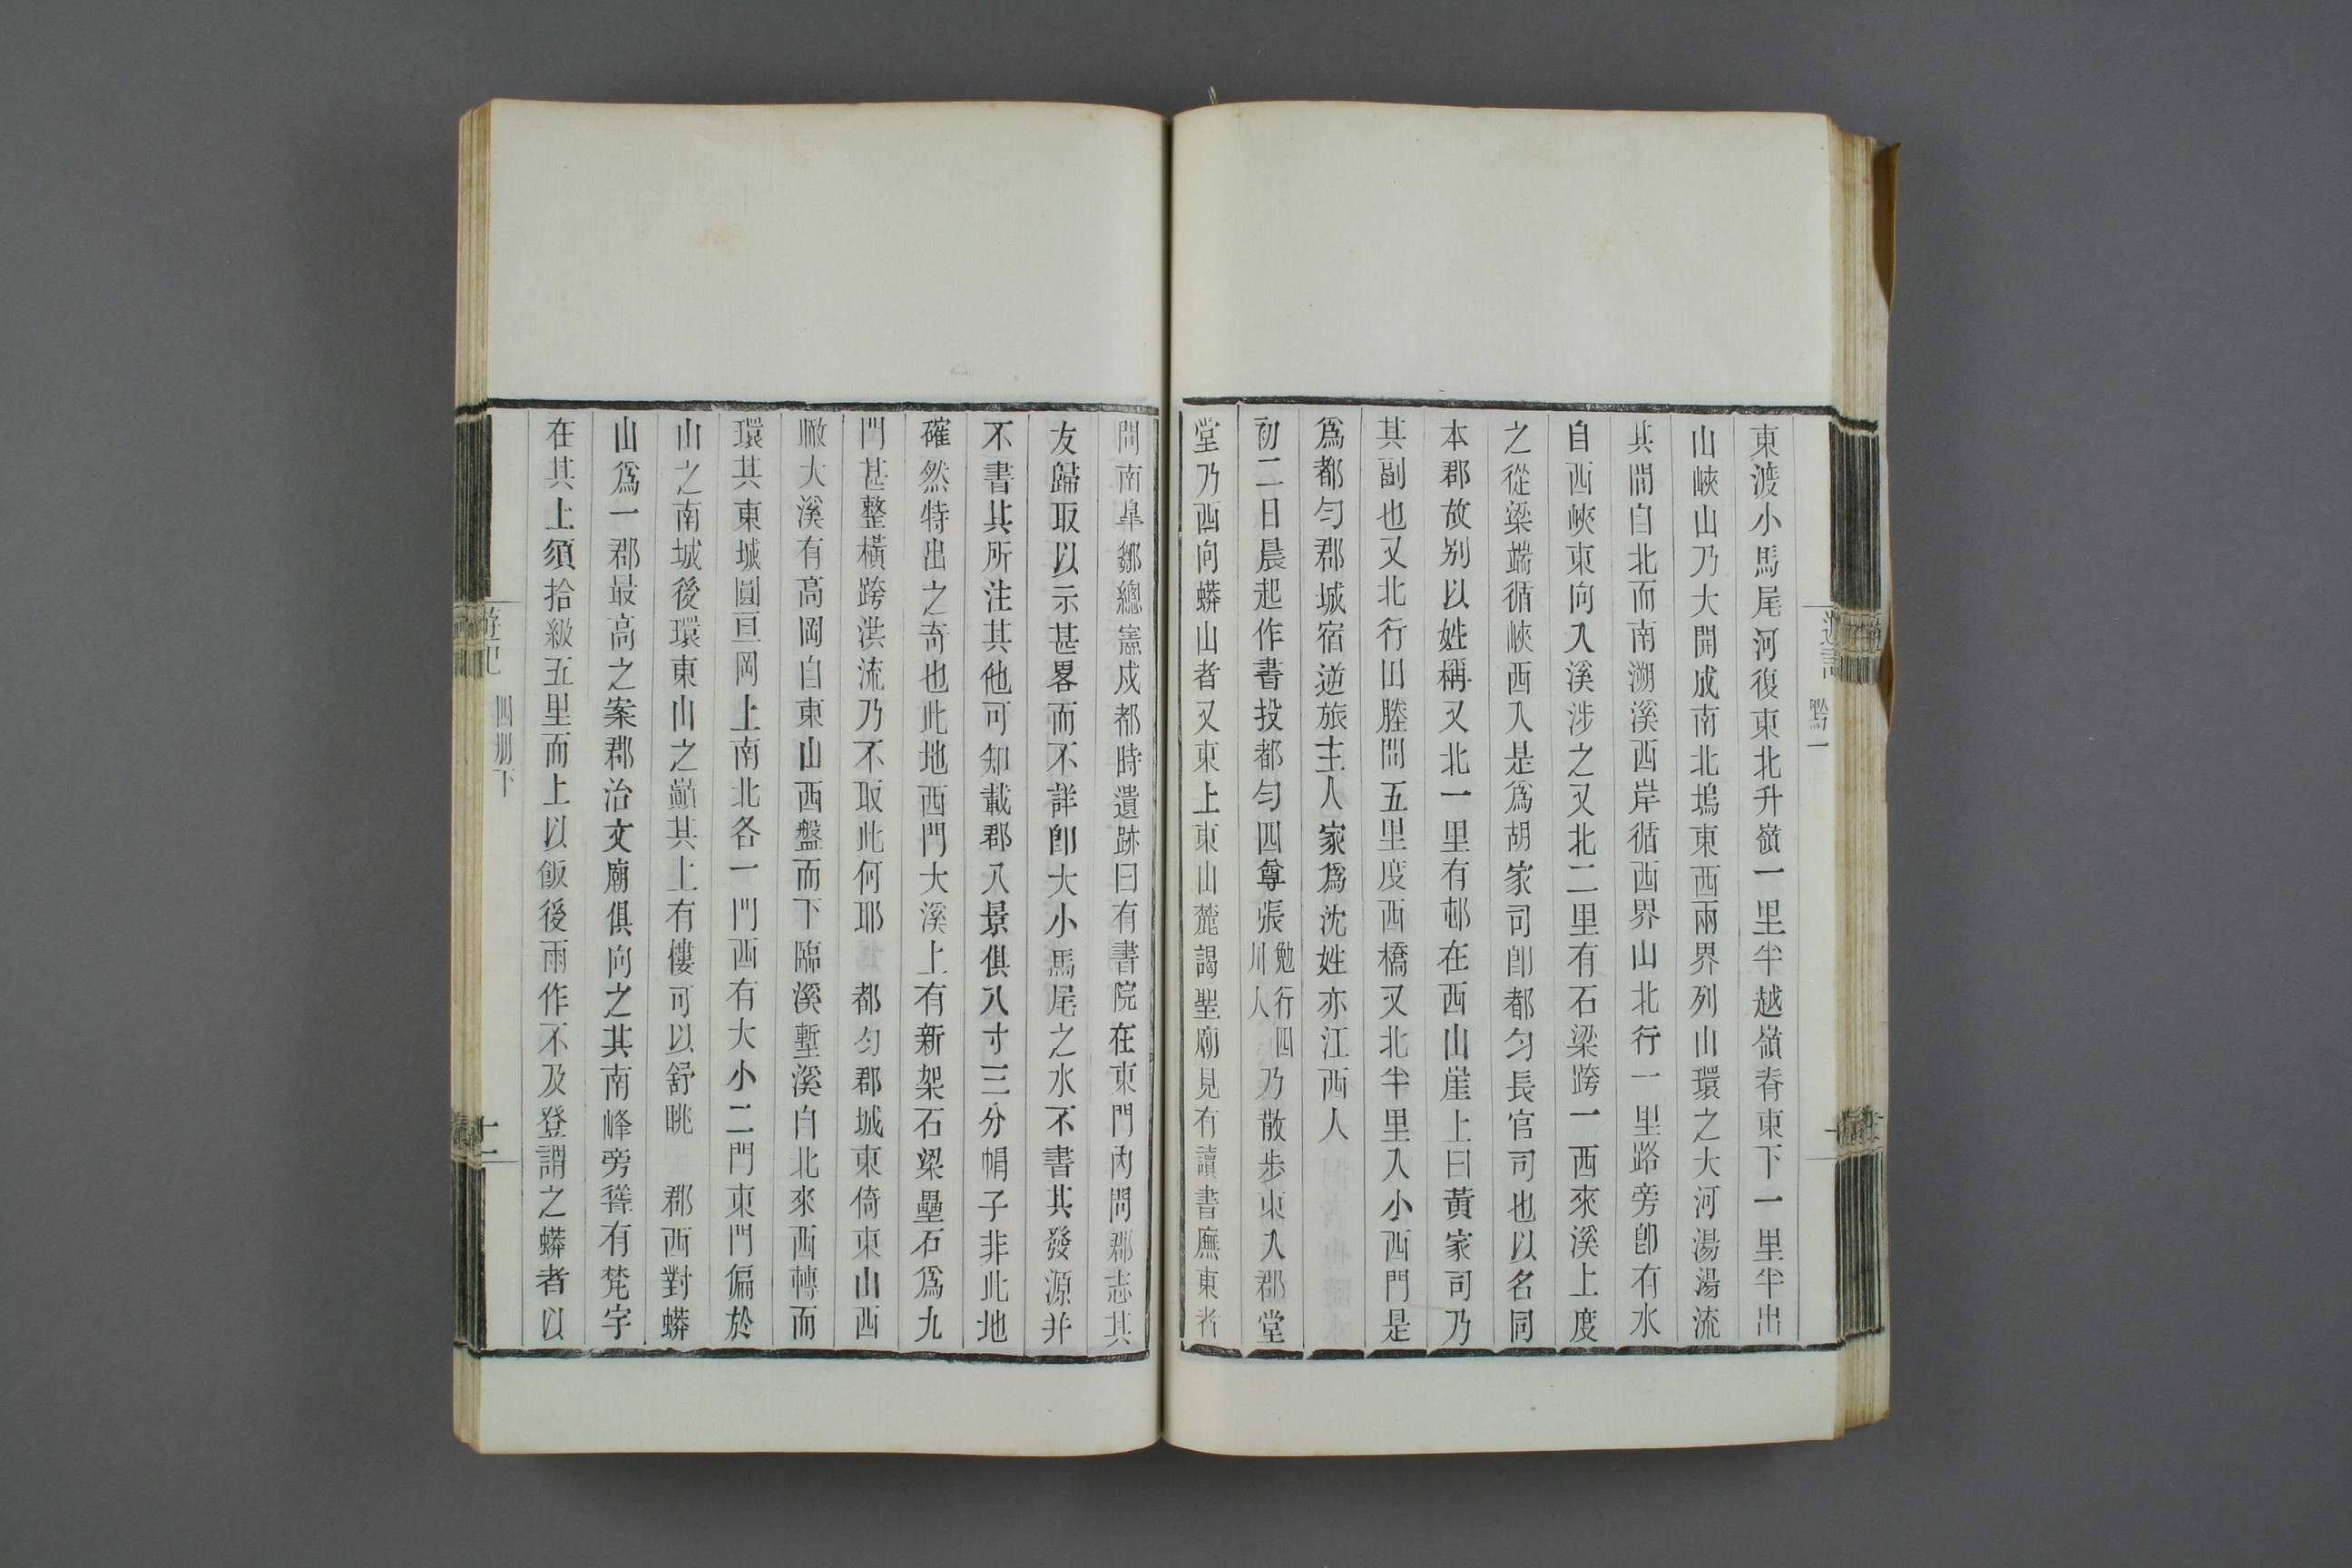 遊記
黔一
東渡小馬尾河復東北升嶺一里半越嶺脊東下一里半出
山峽山乃大開成南北塢東西兩界列山環之大河湯湯流
其間自北而南溯溪西岸循西界山北行一里路旁卽有水
自西峽東向入溪涉之又北二里有石梁跨一西來溪上度
之從梁端循峽西入是爲胡家司卽都勻長官司也以名同
本郡故别以姓稱又北一里有邨在西山崖上曰黃家司乃
其副也又北行田塍間五里度西橋又北半里入小西門是
爲都勻郡城宿逆旅主人家爲沈姓亦江西人
初二日晨起作書投都勻四尊張勉行四川人乃散步東入郡堂
堂乃西向蟒山者又東上東山麓謁聖廟見有讀書廡東者
問南皐鄒總憲戍都時遺跡曰有書院在東門內問郡志其
友歸取以示甚畧而不詳卽大小馬尾之水不書其發源并
不書其所注其他可知載郡八景俱八寸三分帽子非此地
確然特出之奇也此地西門大溪上有新架石梁壘石爲九
門甚整橫跨洪流乃不取此何耶　都勻郡城東倚東山西
瞰大溪有高岡自東山西盤而下臨溪塹溪自北來西轉而
環其東城圓亘岡上南北各一門西有大小二門東門偏於
山之南城後環東山之巔其上有樓可以舒眺　郡西對蟒
山爲一郡最高之案郡治文廟俱向之其南峰旁聳有梵宇
在其上須拾級五里而上以飯後雨作不及登謂之蟒者以
游記
四册下
十一